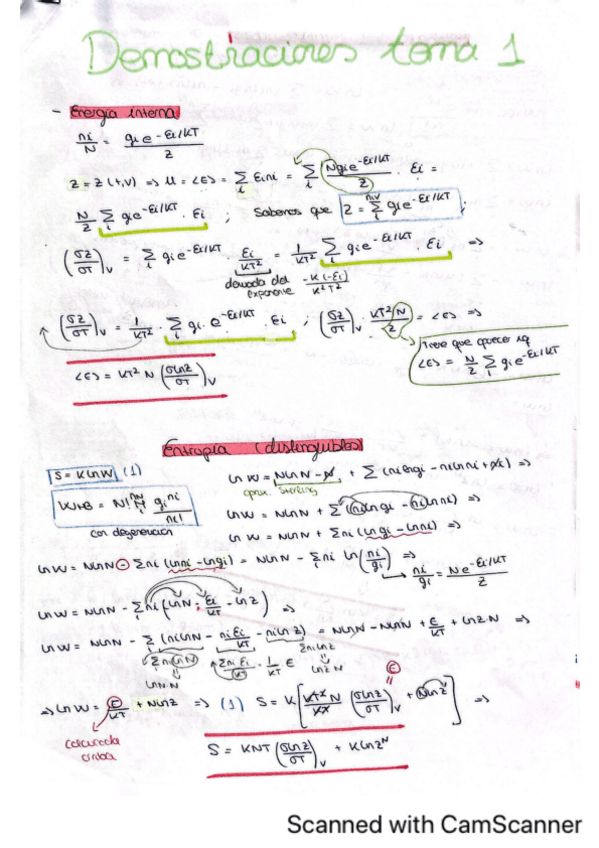 Demostraciones tema 1
- Energía interna
ni/N = gi e^-Ei/KT / Z
Z = Z(T,V) => U = <E> = Σi Ei ni = Σi N gi e^-Ei/KT / Z · Ei =
N/Z Σi gi e^-Ei/KT · Ei ; Sabemos que Z = Σi^niv gi e^-Ei/KT
(σZ/σT)V = Σi gi e^-Ei/KT Ei/KT² = 1/KT² Σi gi e^-Ei/KT · Ei =>
derivada del exponente -K(-Ei)/K²T²
(σZ/σT)V = 1/KT² · Σi gi · e^-Ei/KT · Ei ; (σZ/σT)V · KT² N/Z = <E> =>
Tiene que aparecer
<E> = N/Z Σi gi e^-Ei/KT
<E> = KT² N (σlnZ/σT)V
Entropía (distinguibles)
S = K ln W (1)
ln W = N ln N - N + Σ (ni ln gi - ni ln ni + ni) =>
aprox. Stirling
WMB = N! Π gi^ni / ni!
con degeneración
ln W = N ln N + Σ (ni ln gi - ni ln ni) =>
ln W = N ln N + Σ ni (ln gi - ln ni) =>
ln W = N ln N - Σ ni (ln ni - ln gi) = N ln N - Σi ni ln (ni/gi) =>
ni/gi = N e^-Ei/KT / Z
ln W = N ln N - Σi ni (ln N - Ei/KT - ln Z) =>
ln W = N ln N - Σi (ni ln N - ni Ei/KT - ni ln Z) = N ln N - N ln N + E/KT + ln Z · N =>
Σ ni ln N
Σ ni Ei/KT · 1/KT · E
Σ ni ln Z
ln N · N
ln Z · N
=> ln W = E/KT + N ln Z => (1) S = K [ KT² N/KT (σlnZ/σT)V + N ln Z ] =>
E
calculada
arriba
S = KNT (σlnZ/σT)V + K ln Z^N
Scanned with CamScanner